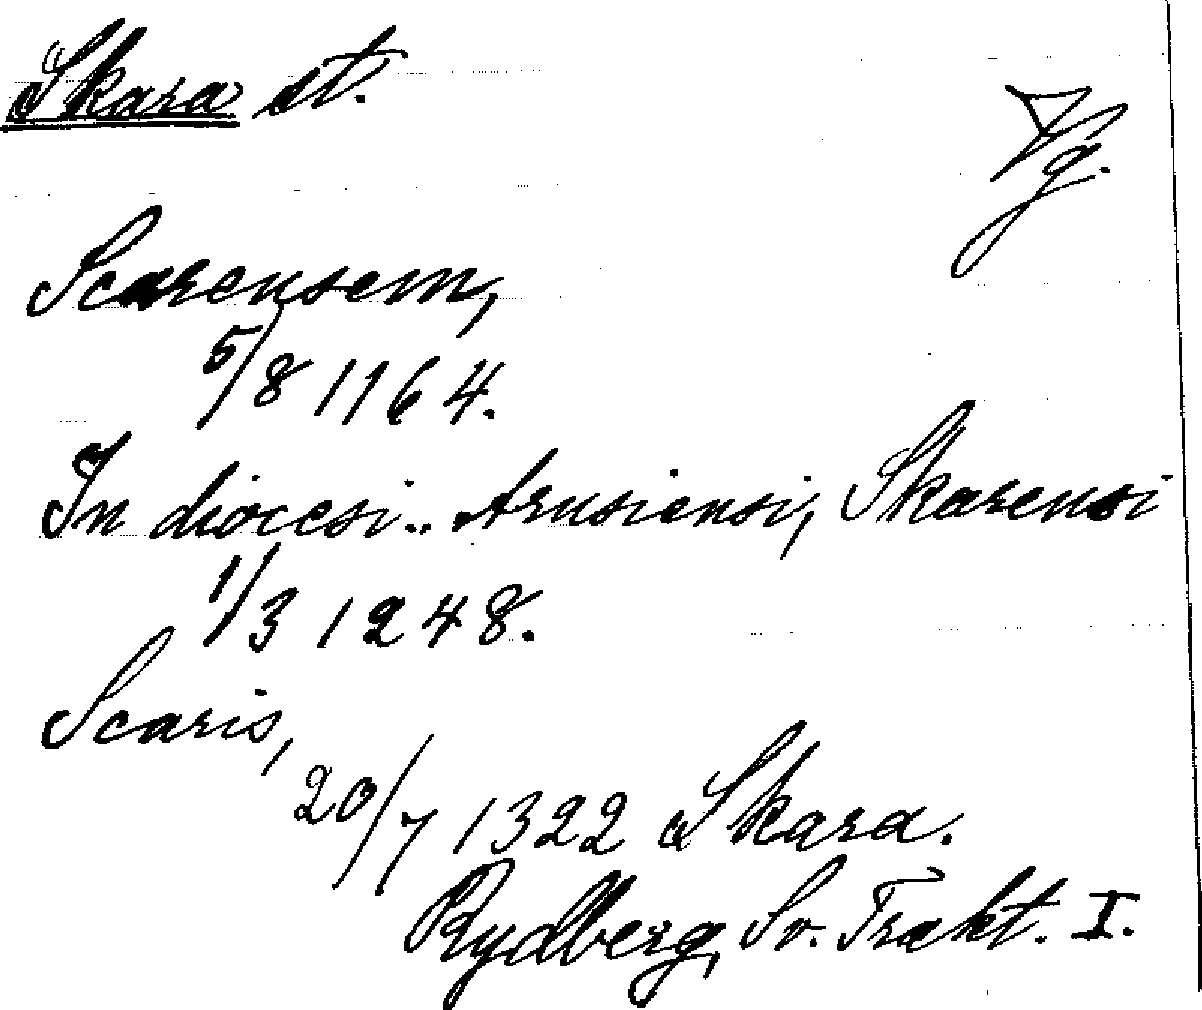 Skara st.
Vg.
Scarensem,
5/8 1164.
In diocesi.. Arusiensi, Skarensi
1/3 1248.
Scaris,
20/7 1322 Skara.
Rydberg, Sv. Trakt. I.